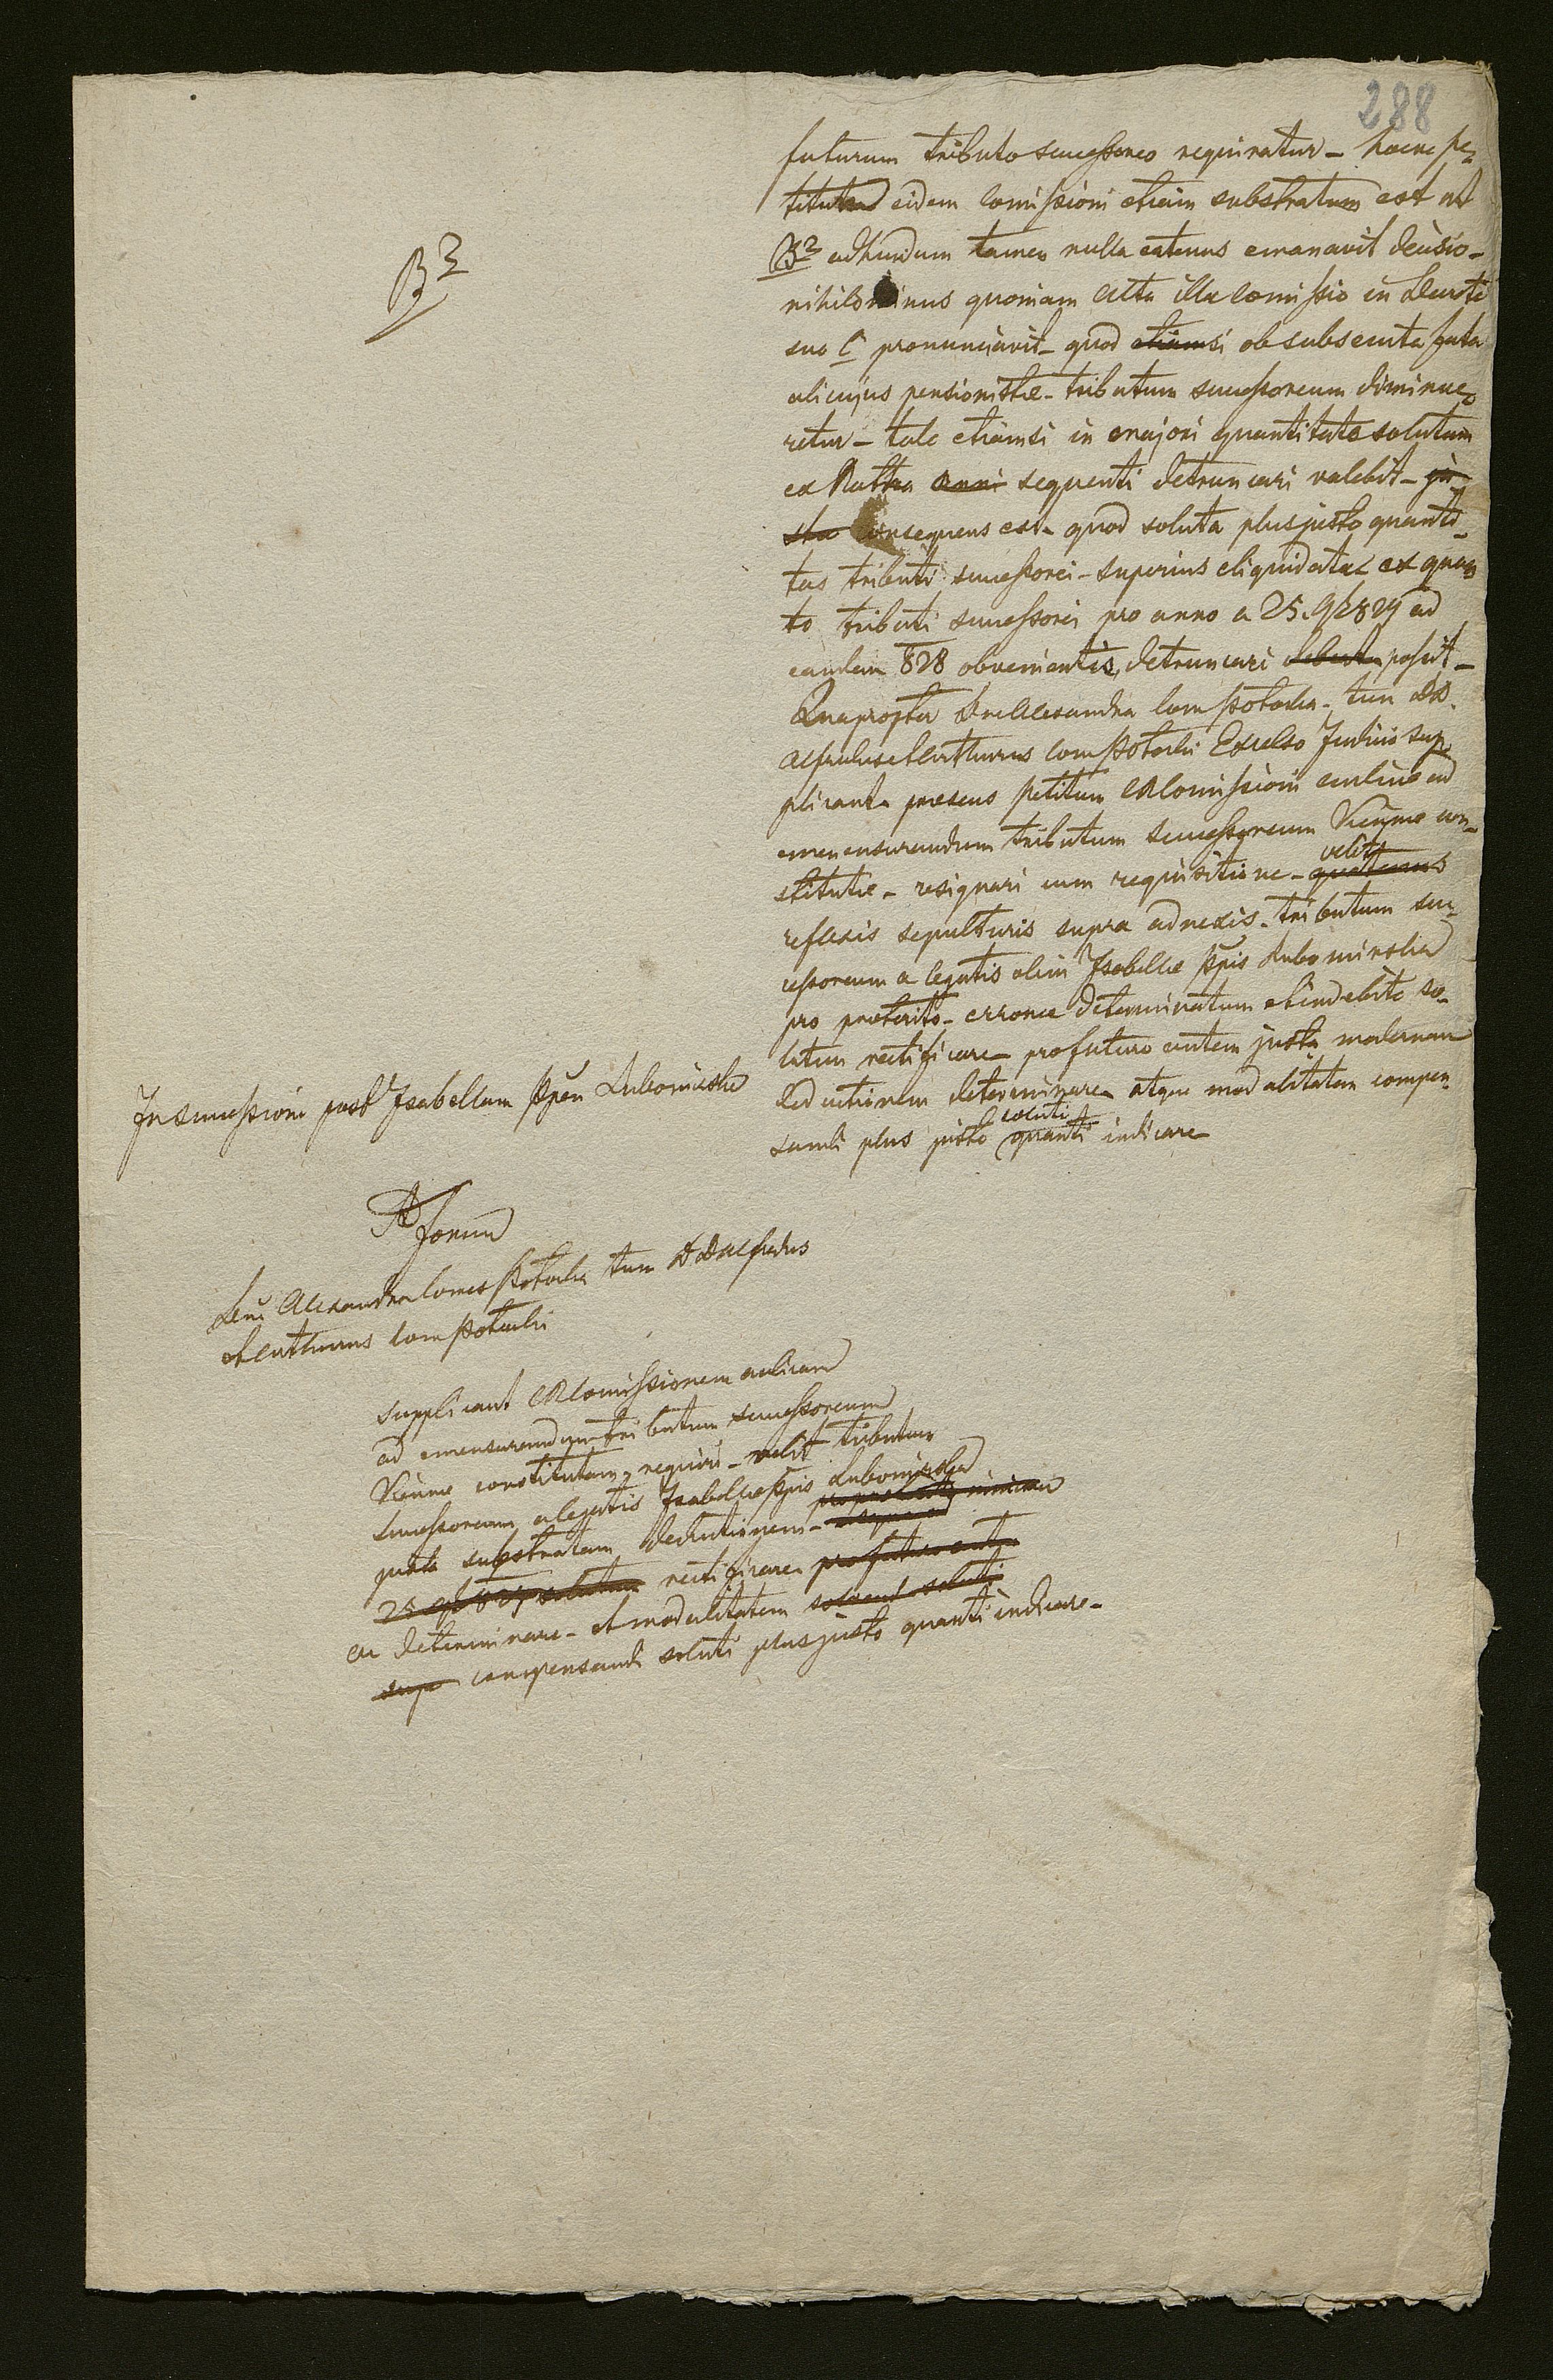 288
futurum tributo successoreo requiratur – haecce pe-
titum eidem Comissioni etiam substratum est ut
B² adhucdum tamen nulla eatenus emanavit decisio –
nihilominus quoniam Alta illa Comissio in Decreto
suo C pronunciavit – quod etiamsi ob subsecuta fata
alicujus pensionistae – tributum successoreum diminue-
retur – tale etiamsi in majori quantitate solutum
ex Ratha anni sequenti detruncari valebit – ju-
sta consequens est – quod soluta plus justo quanti-
tas tributi successorei – superius eliquidata ex quan-
to tributi successorei pro anno a 25. 9/827 ad
eandem 828 obvenientis, detruncari debeat possit –
Quapropter Dna Alexandra Com Potocka – tum DD.
Alfredus et Arthurus Com Potocki Excelso Judicio sup-
plicant praesens petitum CR Comissioni aulicae ad
emensurandum tributum successoreum Viennae con-
stitutae – resignari cum requisitione – quatenus
velit
reflexis sepulturis supra adnexis – tributum suc-
cessoreum a legatis olim Isabellae Ppis Lubomirska
pro praeterito – erronee determinatum et indebite so-
lutum rectificare pro futuro autem juxta modernam
deductionem determinare atque modalitatem compen-
sandi plus justo quanti indicare
soluti
B²
In successione post Isabellam Ppem Lubomirska
Ad Forum
Dna Alexandra Comes Potocka tum DD Alfredus
et Arthurus Com Potocki
supplicant CR Comissionem aulicam
ad emensurandum tributum successoreum
Viennae constitutam, requiri – velit tributum
successoreum a legatis Isabellae Ppis Lubomirska
juxta substratam deductionem –
25 9/827 solutum rectificare pro futuro autem
ea determinare – et modalitatem solvend soluti
sup compensandi soluti plus justo quanti indicare –